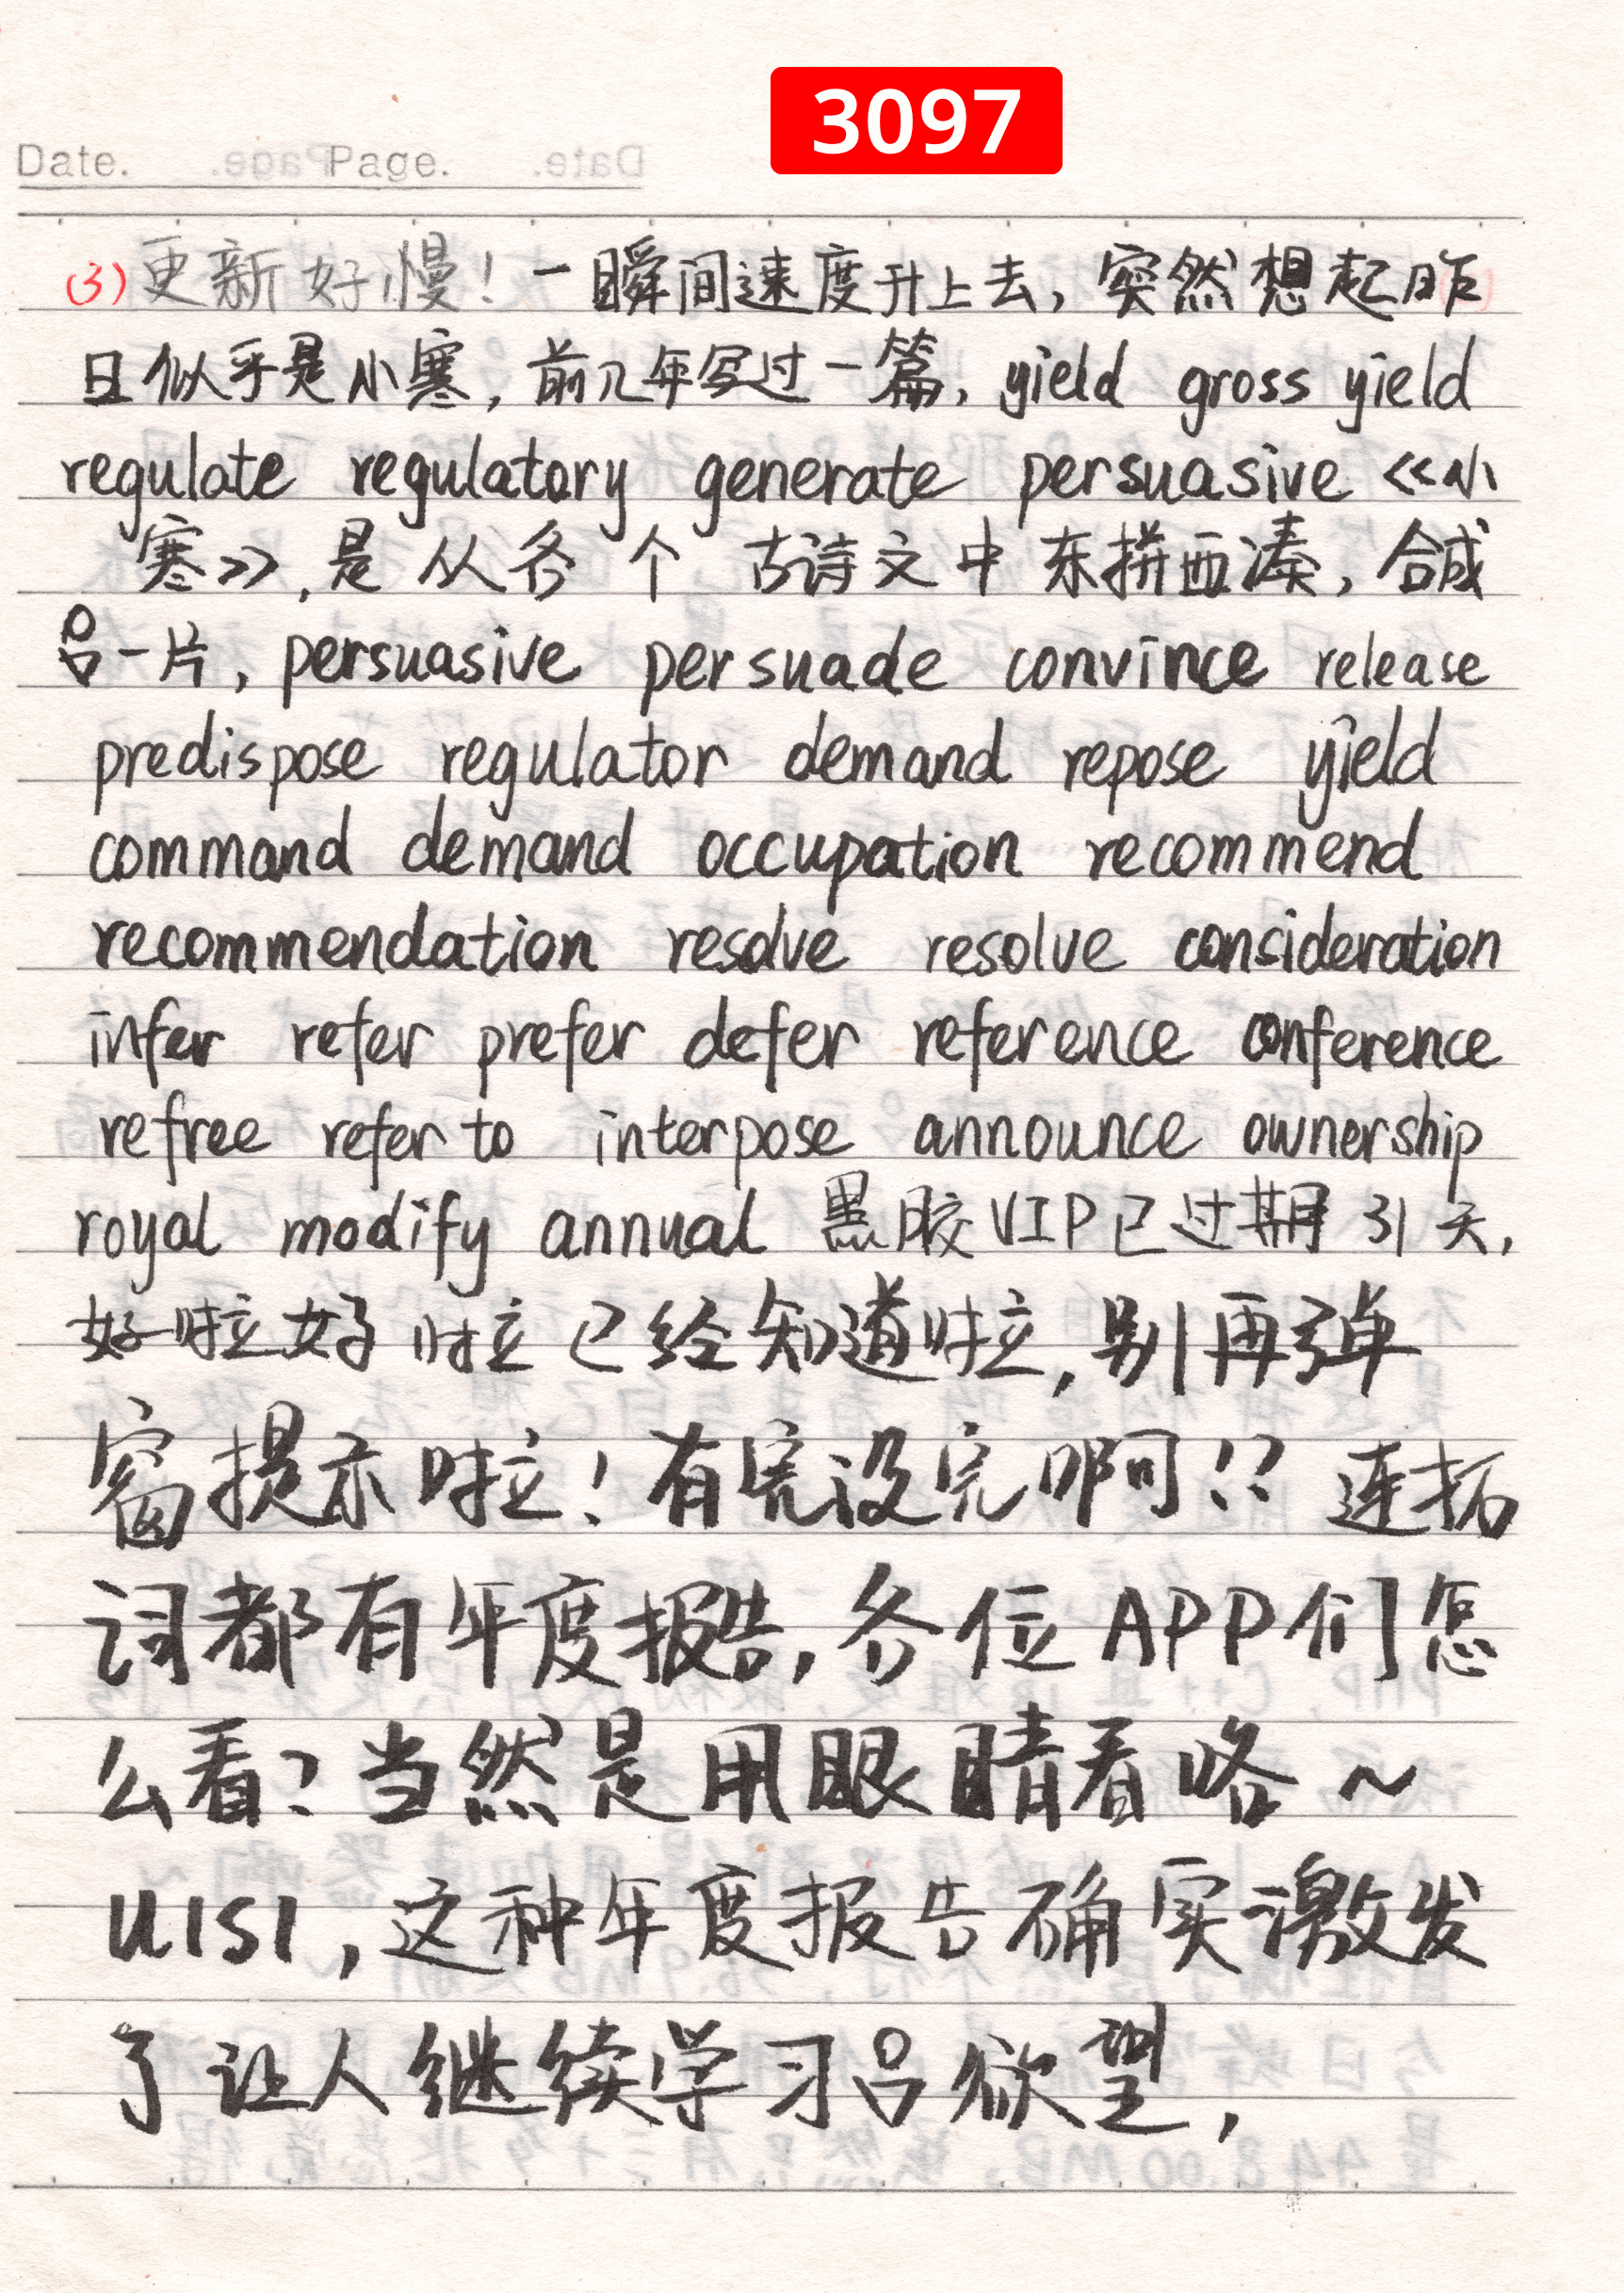 3097
Date. Page.
(3) 更新好慢！一瞬间速度升上去，突然想起昨
日似乎是小寒，前几年写过一篇，yield gross yield
regulate regulatory generate persuasive 《小
寒》，是从各个古诗文中东拼西凑，合成
吕一片，persuasive persuade convince release
predispose regulator demand repose yield
command demand occupation recommend
recommendation resolve resolve consideration
infer refer prefer defer reference conference
refree refer to interpose announce ownership
royal modify annual 黑胶VIP已过期31天，
好啦好啦已经知道啦，别再弹
窗提示啦！有完没完啊！？连拓
词都有年度报告，各位APP们怎
么看？当然是用眼睛看咯～
U1S1，这种年度报告确实激发
了让人继续学习吕欲望，